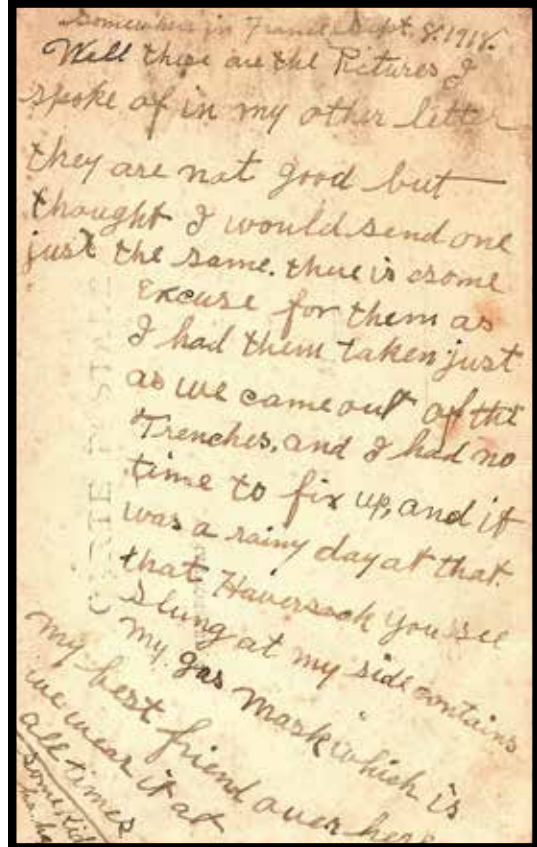 Somewhere in France Sept. 8. 1918.
Well these are the Pictures I
spoke of in my other letter
they are not good but
thought I would send one
just the same. there is some
excuse for them as
I had them taken just
as we came out of the
Trenches, and I had no
time to fix up, and it
was a rainy day at that.
that Haversack you see
slung at my side contains
my gas mask which is
my best friend over here
we wear it at
all times
some kid
ha. ha
CARTE POSTALE